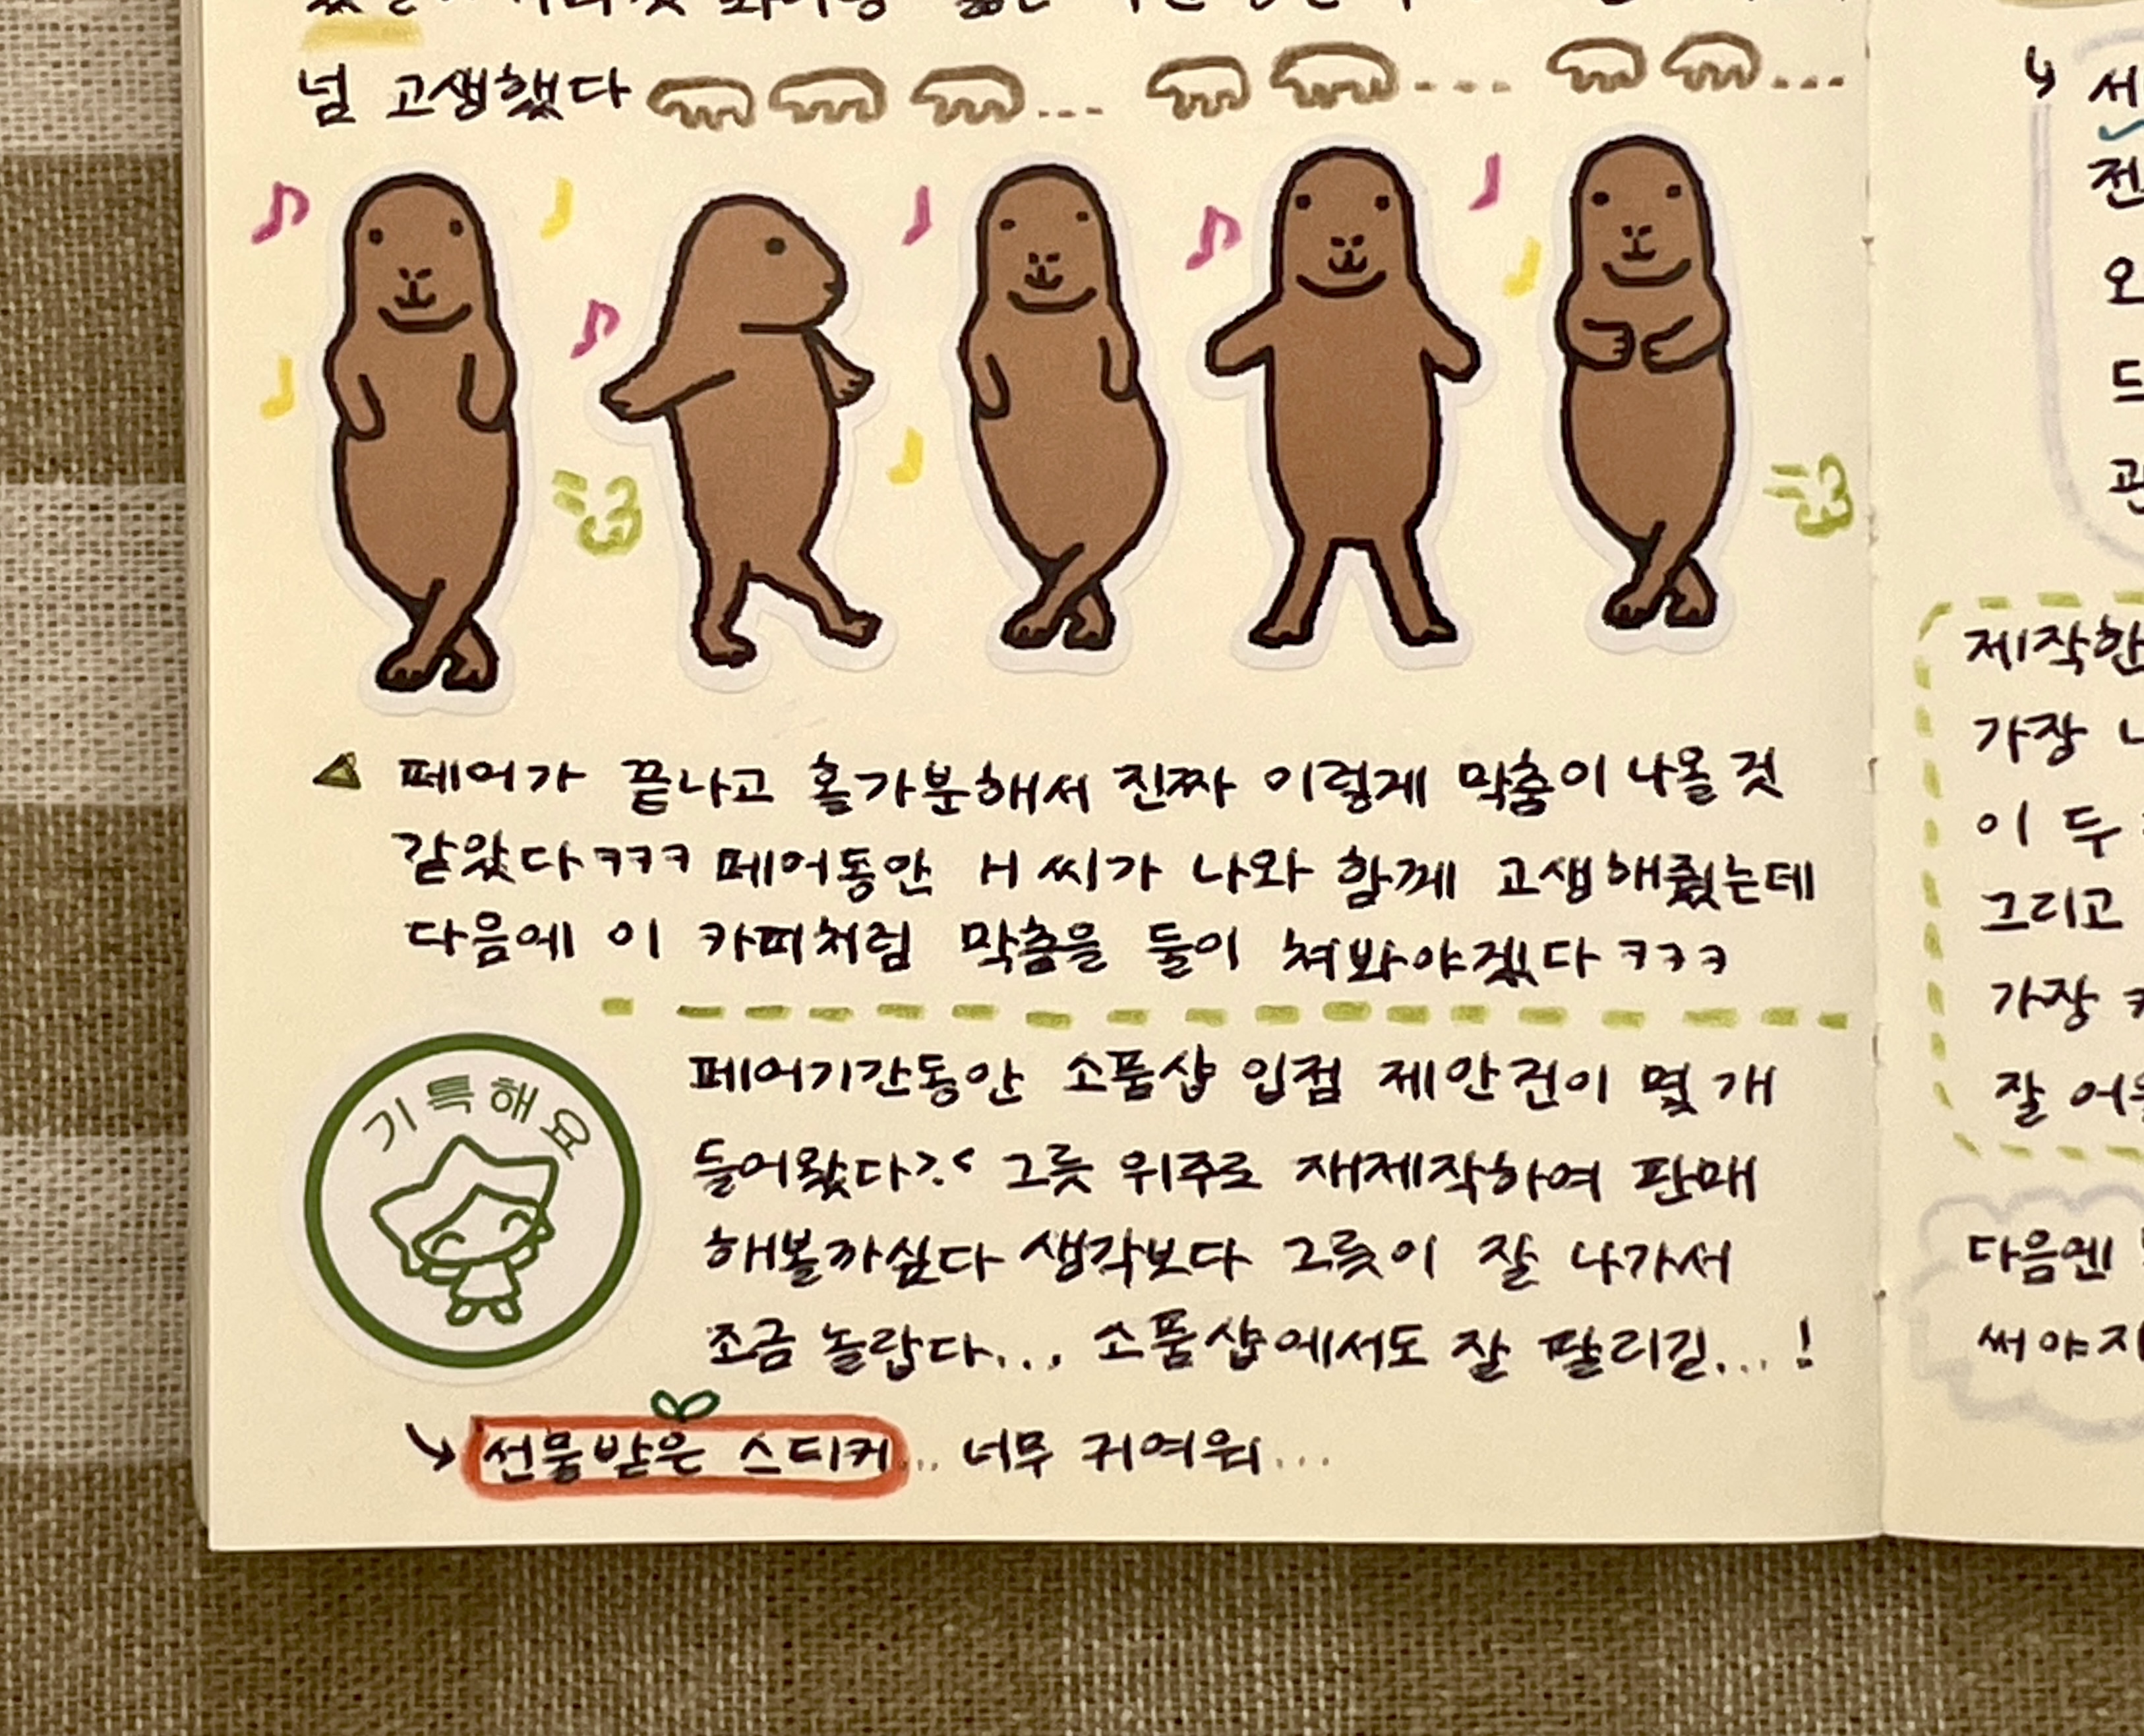 넘 고생했다
페어가 끝나고 홀가분해서 진짜 이렇게 막춤이 나올 것
같았다ㅋㅋㅋ 페어동안 H씨가 나와 함께 고생해줬는데
다음에 이 카피처럼 막춤을 둘이 춰봐야겠다ㅋㅋㅋ
기특해요
페어기간동안 소품샵 입점 제안건이 몇 개
들어왔다>.< 그릇 위주로 재제작하여 판매
해볼까싶다 생각보다 그릇이 잘 나가서
조금 놀랍다... 소품샵에서도 잘 팔리길...!
선물받은 스티커... 너무 귀여워...
서
전
오
드
관
제작한
가장 나
이 두
그리고
가장 ㅋ
잘 어울
다음엔
써야지